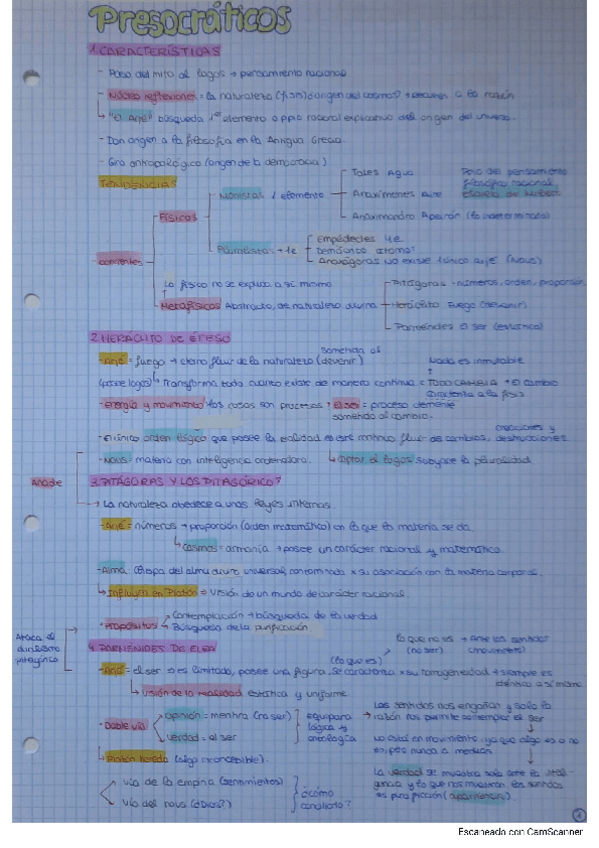 Presocráticos
1. CARACTERÍSTICAS
- Paso del mito al logos → pensamiento racional.
- Núcleo reflexiones = la naturaleza (fisis) ¿origen del cosmos? → recurren a la razón
"El Arjé" búsqueda 1er elemento o ppio racional explicativo del origen del universo.
- Dan origen a la filosofía en la Antigua Grecia.
- Giro antropológico (origen de la democracia)
TENDENCIAS
- corrientes
Físicos
Monistas 1 elemento
Tales Agua
Anaxímenes Aire
Anaximandro Apeirón (lo indeterminado)
Paso del pensamiento filosófico racional,
Pluralistas + 1e
Empédocles 4e
Demócrito átomos
Anaxágoras No existe 1 único arjé (Nous)
Lo físico no se explica a sí mismo
Metafísicos Abstracto, de naturaleza divina
Pitágoras - números, orden, proporción
Heráclito Fuego (devenir)
Parménides O ser (estático)
2. HERÁCLITO DE ÉFESO
- Arjé = fuego → eterno fluir de la naturaleza (devenir)
sometida al
Nada es inmutable
(posee logos) Transforma todo cuanto existe de manera continua = TODO CAMBIA → El cambio
caracteriza a la fisis
- Energía y movimiento → las cosas son procesos → El ser = proceso
sometido al cambio.
- El único orden lógico que posee la realidad es este continuo fluir de cambios, creaciones y destrucciones.
- Nous = materia con inteligencia ordenadora.
Captar el logos subyace la pluralidad
Añade
3. PITÁGORAS Y LOS PITAGÓRICOS
→ La naturaleza obedece a unas leyes internas
- Arjé = números → proporción (orden matemático) en la que la materia se da.
Cosmos = armonía → posee un carácter racional y matemático.
- Alma: universal, contaminada x su asociación con la materia corporal.
Influyen en Platón → Visión de un mundo de carácter racional.
- Propósitos
Contemplación → búsqueda de la verdad
Búsqueda de la purificación
Ataca el dualismo pitagórico
4. PARMÉNIDES DE ELEA
lo que no es → Ante los sentidos
(no ser) (movimiento)
(lo que es)
- Arjé = el ser → es limitado, posee una figura, se caracteriza x su homogeneidad → siempre es
idéntico a sí mismo
Visión de la realidad estática y uniforme.
- Doble vía
Opinión = mentira (no ser)
Verdad = el ser
equipara lógica y ontología
Los sentidos nos engañan y solo la
razón nos permite contemplar el ser
No está en movimiento, ya que algo es o no
es, pero nunca a medias
Platón hereda (algo irconcebible).
La verdad se muestra solo ante la inteligencia y lo que nos muestran los sentidos
es pura ficción (apariencias).
vía de la empiria (sentimientos)
vía del nous (¿Dios?)
¿cómo conciliarlo?
1
Escaneado con CamScanner